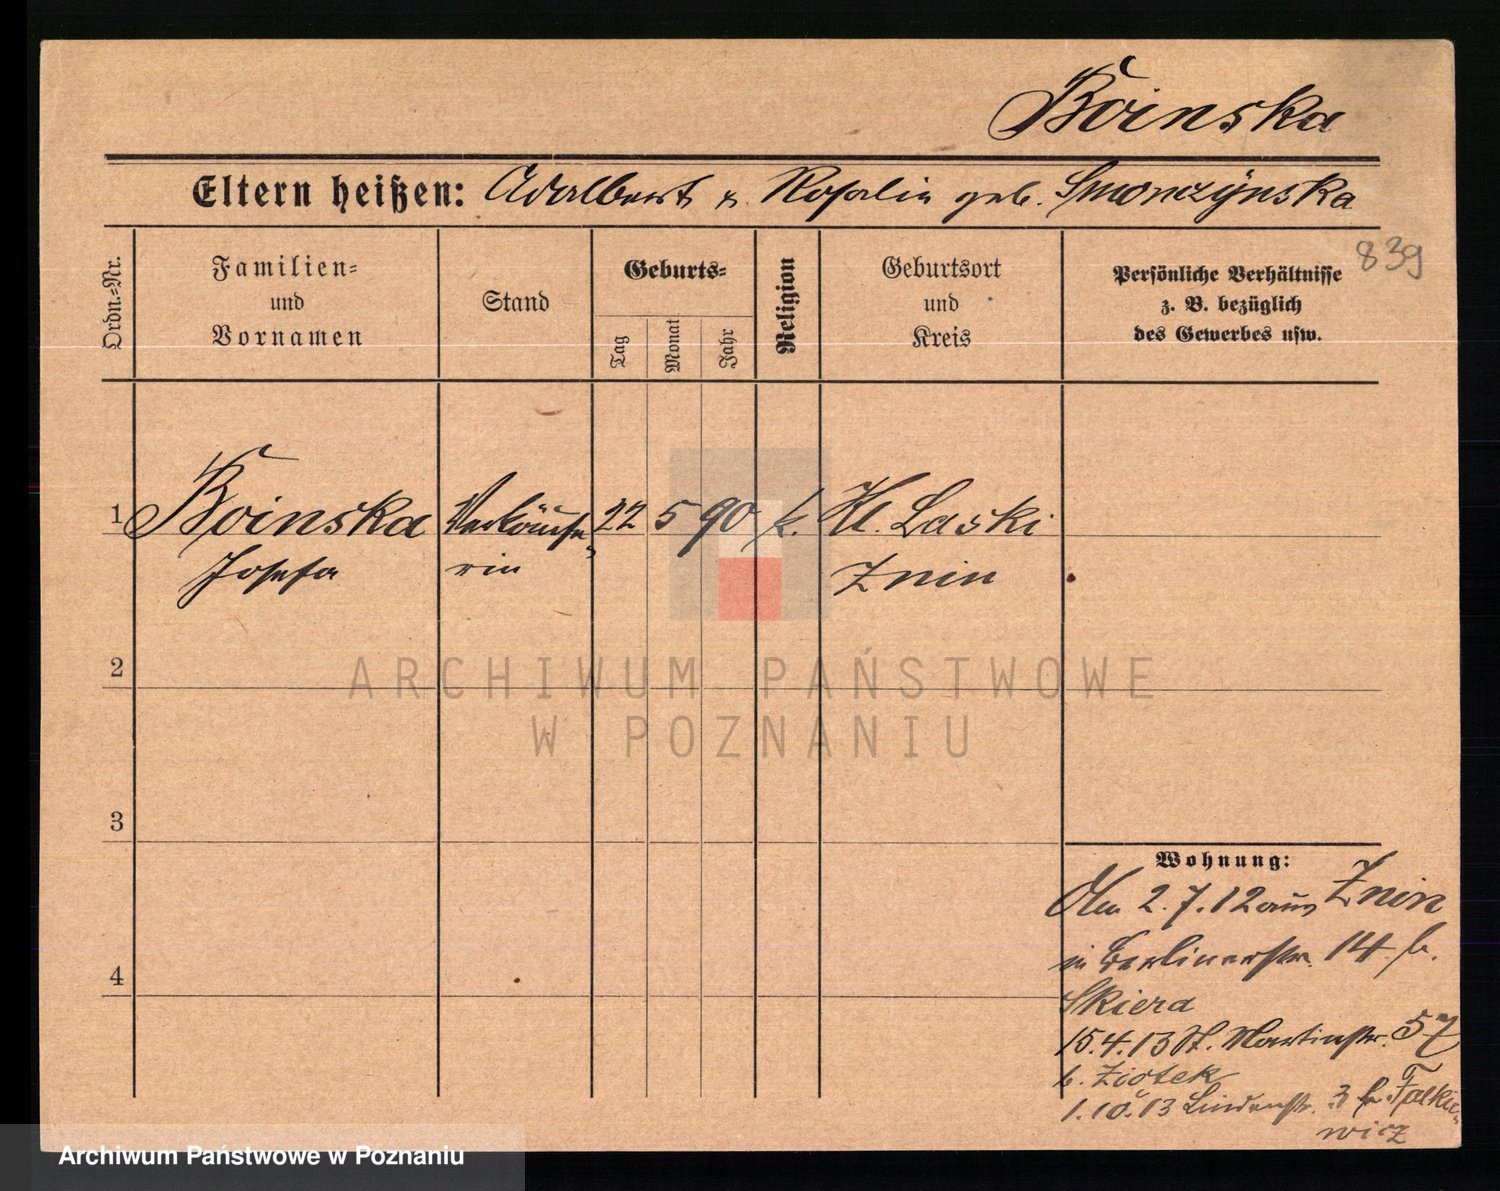 Boinska
Eltern heißen: Adalbert u. Rosalie geb. Smonczynska
839
Ordn.-Nr.
Familien-
und
Vornamen
Stand
Geburts-
Tag
Monat
Jahr
Religion
Geburtsort
und
Kreis
Persönliche Verhältnisse
z. B. bezüglich
des Gewerbes usw.
1 Boinska Verkäufe- 22 5 90 k. Kl. Laski
Josefa rin Znin
2
3
4
Wohnung:
2.7.12 aus Znin
in Berlinerstr. 14 b.
Skiera
15.4.13 St. Martinstr. 57
b. Ziołek
1.10.13 Lindenstr. 3 b. Falkie-
wicz
ARCHIWUM PAŃSTWOWE
W POZNANIU
Archiwum Państwowe w Poznaniu